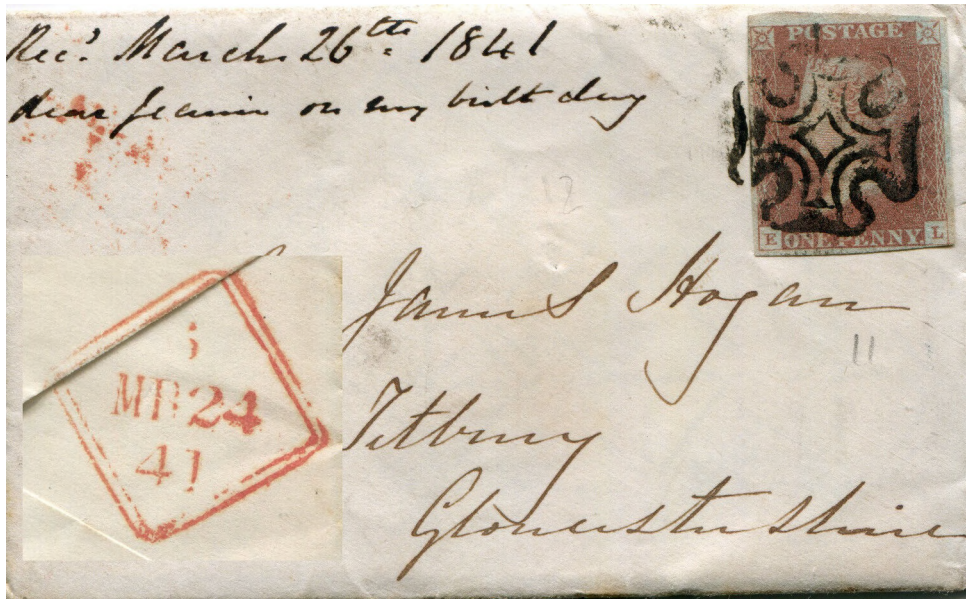 Rec.d March 26th 1841
dear Jeannie on my birth day
POSTAGE
E ONE PENNY. L
12
James Hogan
11
MR 24
41
Tetbury
Gloucestershire